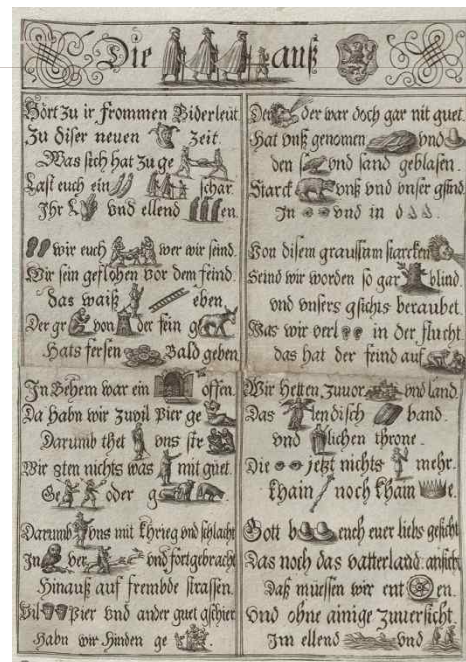 Die auß
Hört zu ir frommen Biderleut
Zu diser neuen Zeit.
Was sich hat zu ge
Last euch ein schar
Ihr L und ellend en.
wir euch wer wir seind.
Wir sein geflohen vor dem feind.
das waiß eben.
Der gr von der sein g
Hats fersen Bald geben
In Behem war ein offen.
Da habn wir zuvil Pier ge
Darumb thet uns str
Wir ten nichts was mit guet.
Ge oder g
Darumb uns mit khrieg und schlacht
In ver und fortgebracht
Hinauß auf frembde strassen.
Vil Pier und ander guet gschier
Habn wir hinden ge
Der der war doch gar nit guet
Hat unß genomen und
den und sand geblasen.
Starck unß und unser gsind.
In und in d
Von disem graussam starcken
Seind wir worden so gar blind.
und unsers gsichts beraubet.
Was wir verl in der flucht
das hat der feind auf
Wir hetten zuvor und land.
Das lendisch band.
und lichen throne.
Die jetzt nichts mehr.
khain noch kham e.
Gott b euch euer liebs gesicht
Das noch das vatterland ansicht
Daß muessen wir ent en.
Und ohne ainige zuversicht
Im ellend und